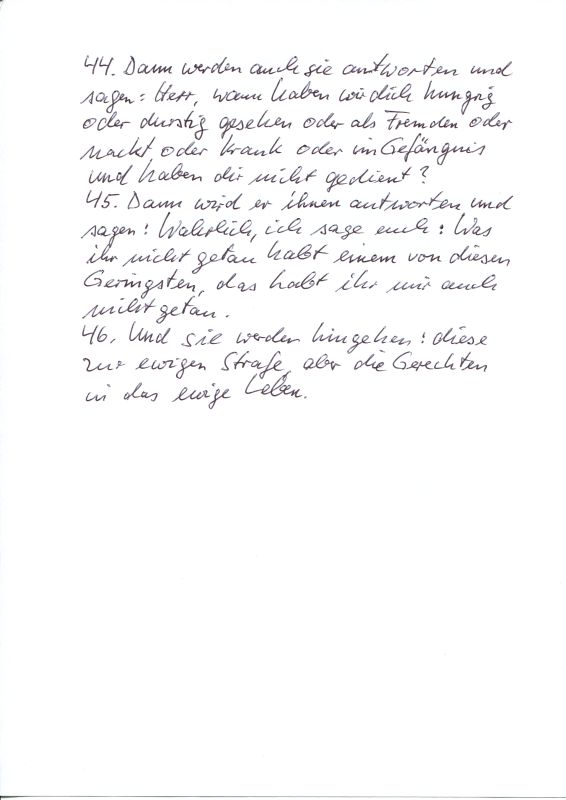 44. Dann werden auch sie antworten und
sagen: Herr, wann haben wir dich hungrig
oder durstig gesehen oder als Fremden oder
nackt oder krank oder im Gefängnis
und haben dir nicht gedient?
45. Dann wird er ihnen antworten und
sagen: Wahrlich, ich sage euch: Was
ihr nicht getan habt einem von diesen
Geringsten, das habt ihr mir auch
nicht getan.
46. Und sie werden hingehen: diese
zur ewigen Strafe, aber die Gerechten
in das ewige Leben.